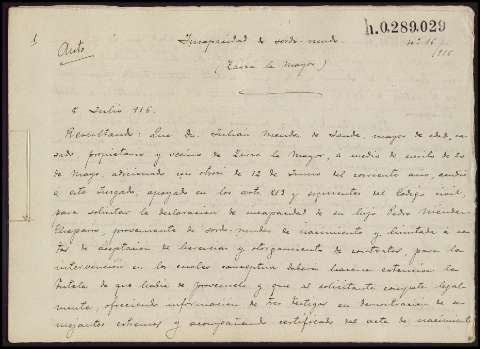 1
h.0.289.029
Auto
Incapacidad de sordo-mudo
nº 16
916
(Zarza la Mayor)
8 Julio 916.
Resultando: Que Dn. Julian Mendez de Sande, mayor de edad, ca-
sado propietario y vecino de Zarza la Mayor, a medio de escrito de 20
de Mayo, adicionado con otro de 12 de Junio del corriente año, acudió
a este Juzgado, apoyado en los arts. 213 y siguientes del Codigo civil,
para solicitar la declaracion de incapacidad de su hijo Pedro Mendez
Chaparro, proveniente de sordo-mudez de nacimiento y limitada á ac-
tos de aceptacion de herencia y otorgamiento de contratos, para la
intervencion en los cuales convenientia debera hacerse extensiva la
tutela de que habia de proveerle y que al solicitante compete legal-
mente, ofreciendo informacion de tres testigos en demostracion de se-
mejantes extremos y acompañando certificado del acta de nacimiento